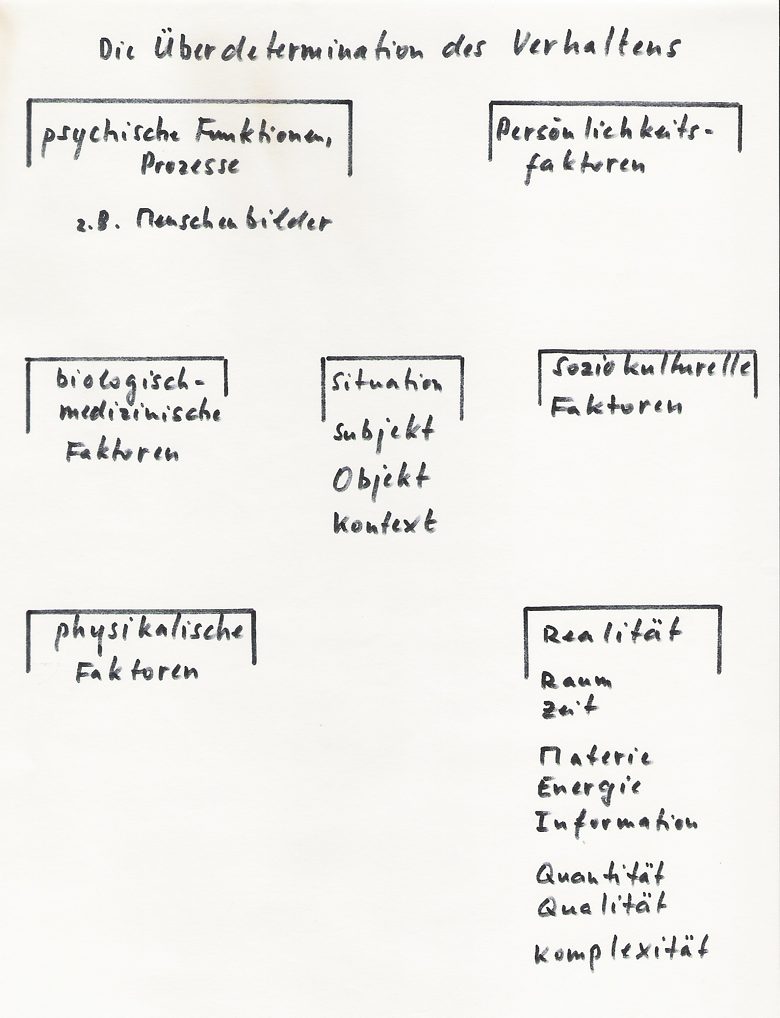 Die Überdetermination des Verhaltens
psychische Funktionen,
Prozesse
z.B. Menschenbilder
Persönlichkeits-
faktoren
biologisch-
medizinische
Faktoren
Situation
Subjekt
Objekt
Kontext
Soziokulturelle
Faktoren
physikalische
Faktoren
Realität
Raum
Zeit
Materie
Energie
Information
Quantität
Qualität
Komplexität